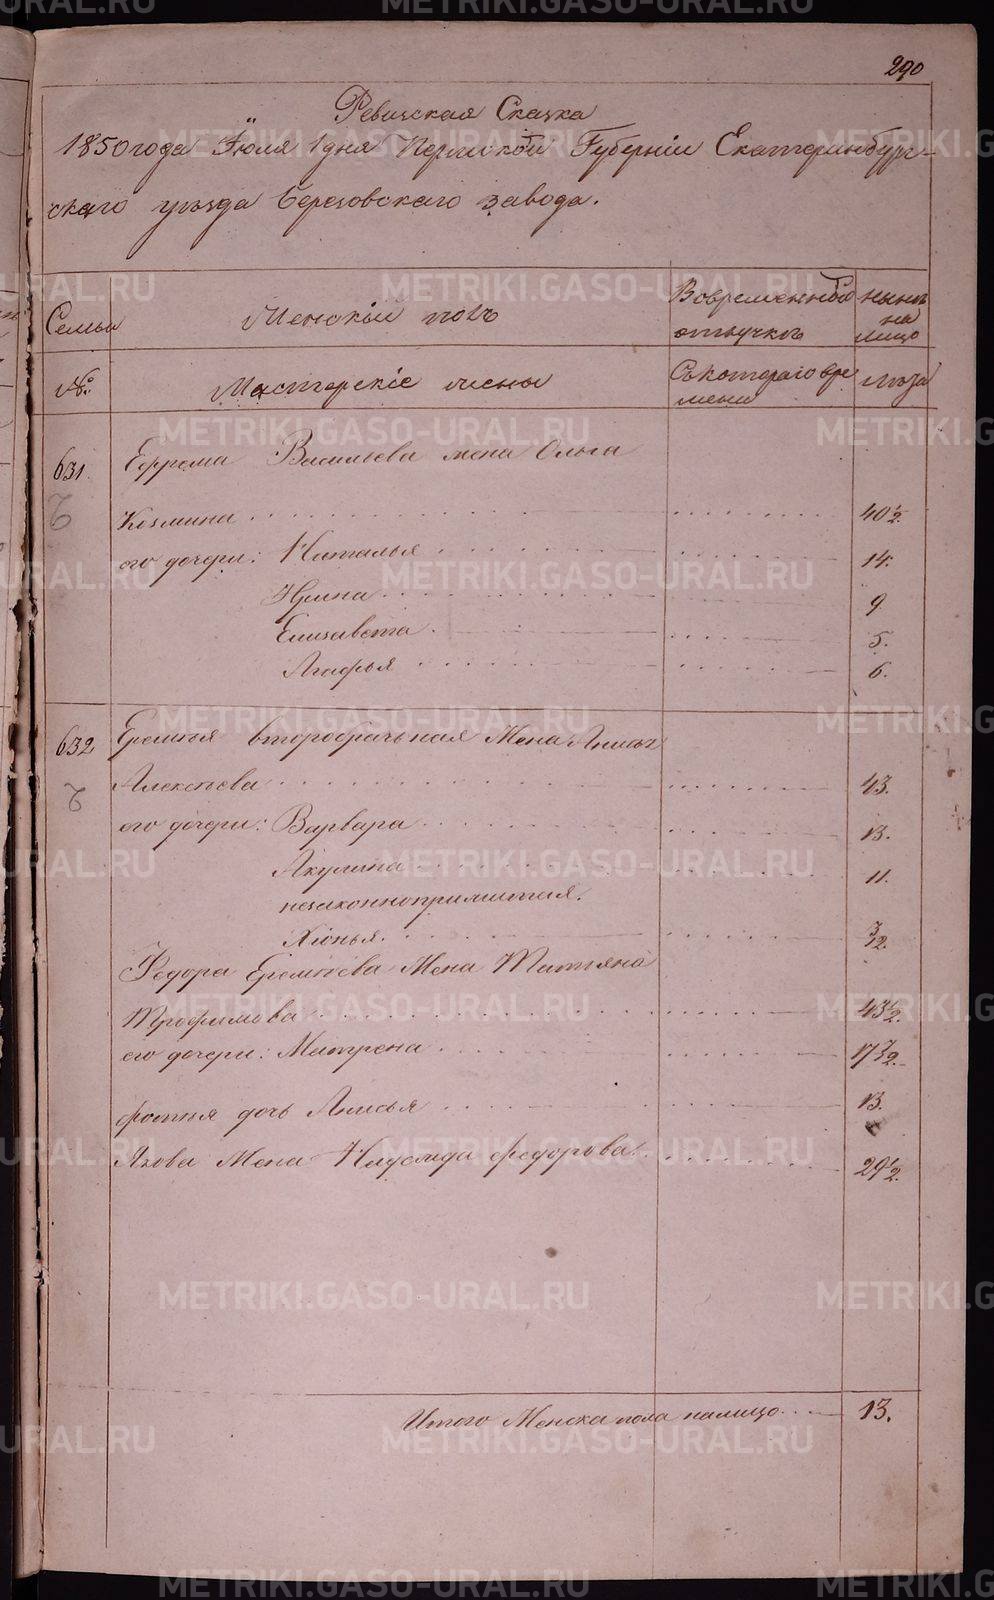 290
Ревизская Сказка
1850 года Іюля 1 дня Пермской Губерніи Екатеринбург-
скаго уѣзда Березовскаго завода.
Семьи
Женскій полъ
Вовременной отлучкѣ
нынѣ на лицо
№:
Мастерскіе жены
Съкотораго вре мени
лѣта
631.
Ефрема Васильева жена Ольга
Козмина 40½.
его дочери: Наталья 14.
Ирина 9
Елизавета 5.
Агафья 6.
632
Еремѣя второбрачьная Жена Анисья
Алексѣева 43.
его дочери: Варвара 13.
Акулина 11.
незаконноприжитая.
Хіонья. 3/12.
Федора Еремѣева Жена Татьяна
Трофимова 43½.
его дочери: Матрена 17½.
дочь Анисья 13.
Якова Жена Надежда Федорова 29½.
Итого Женска пола налицо 13.
METRIKI.GASO-URAL.RU